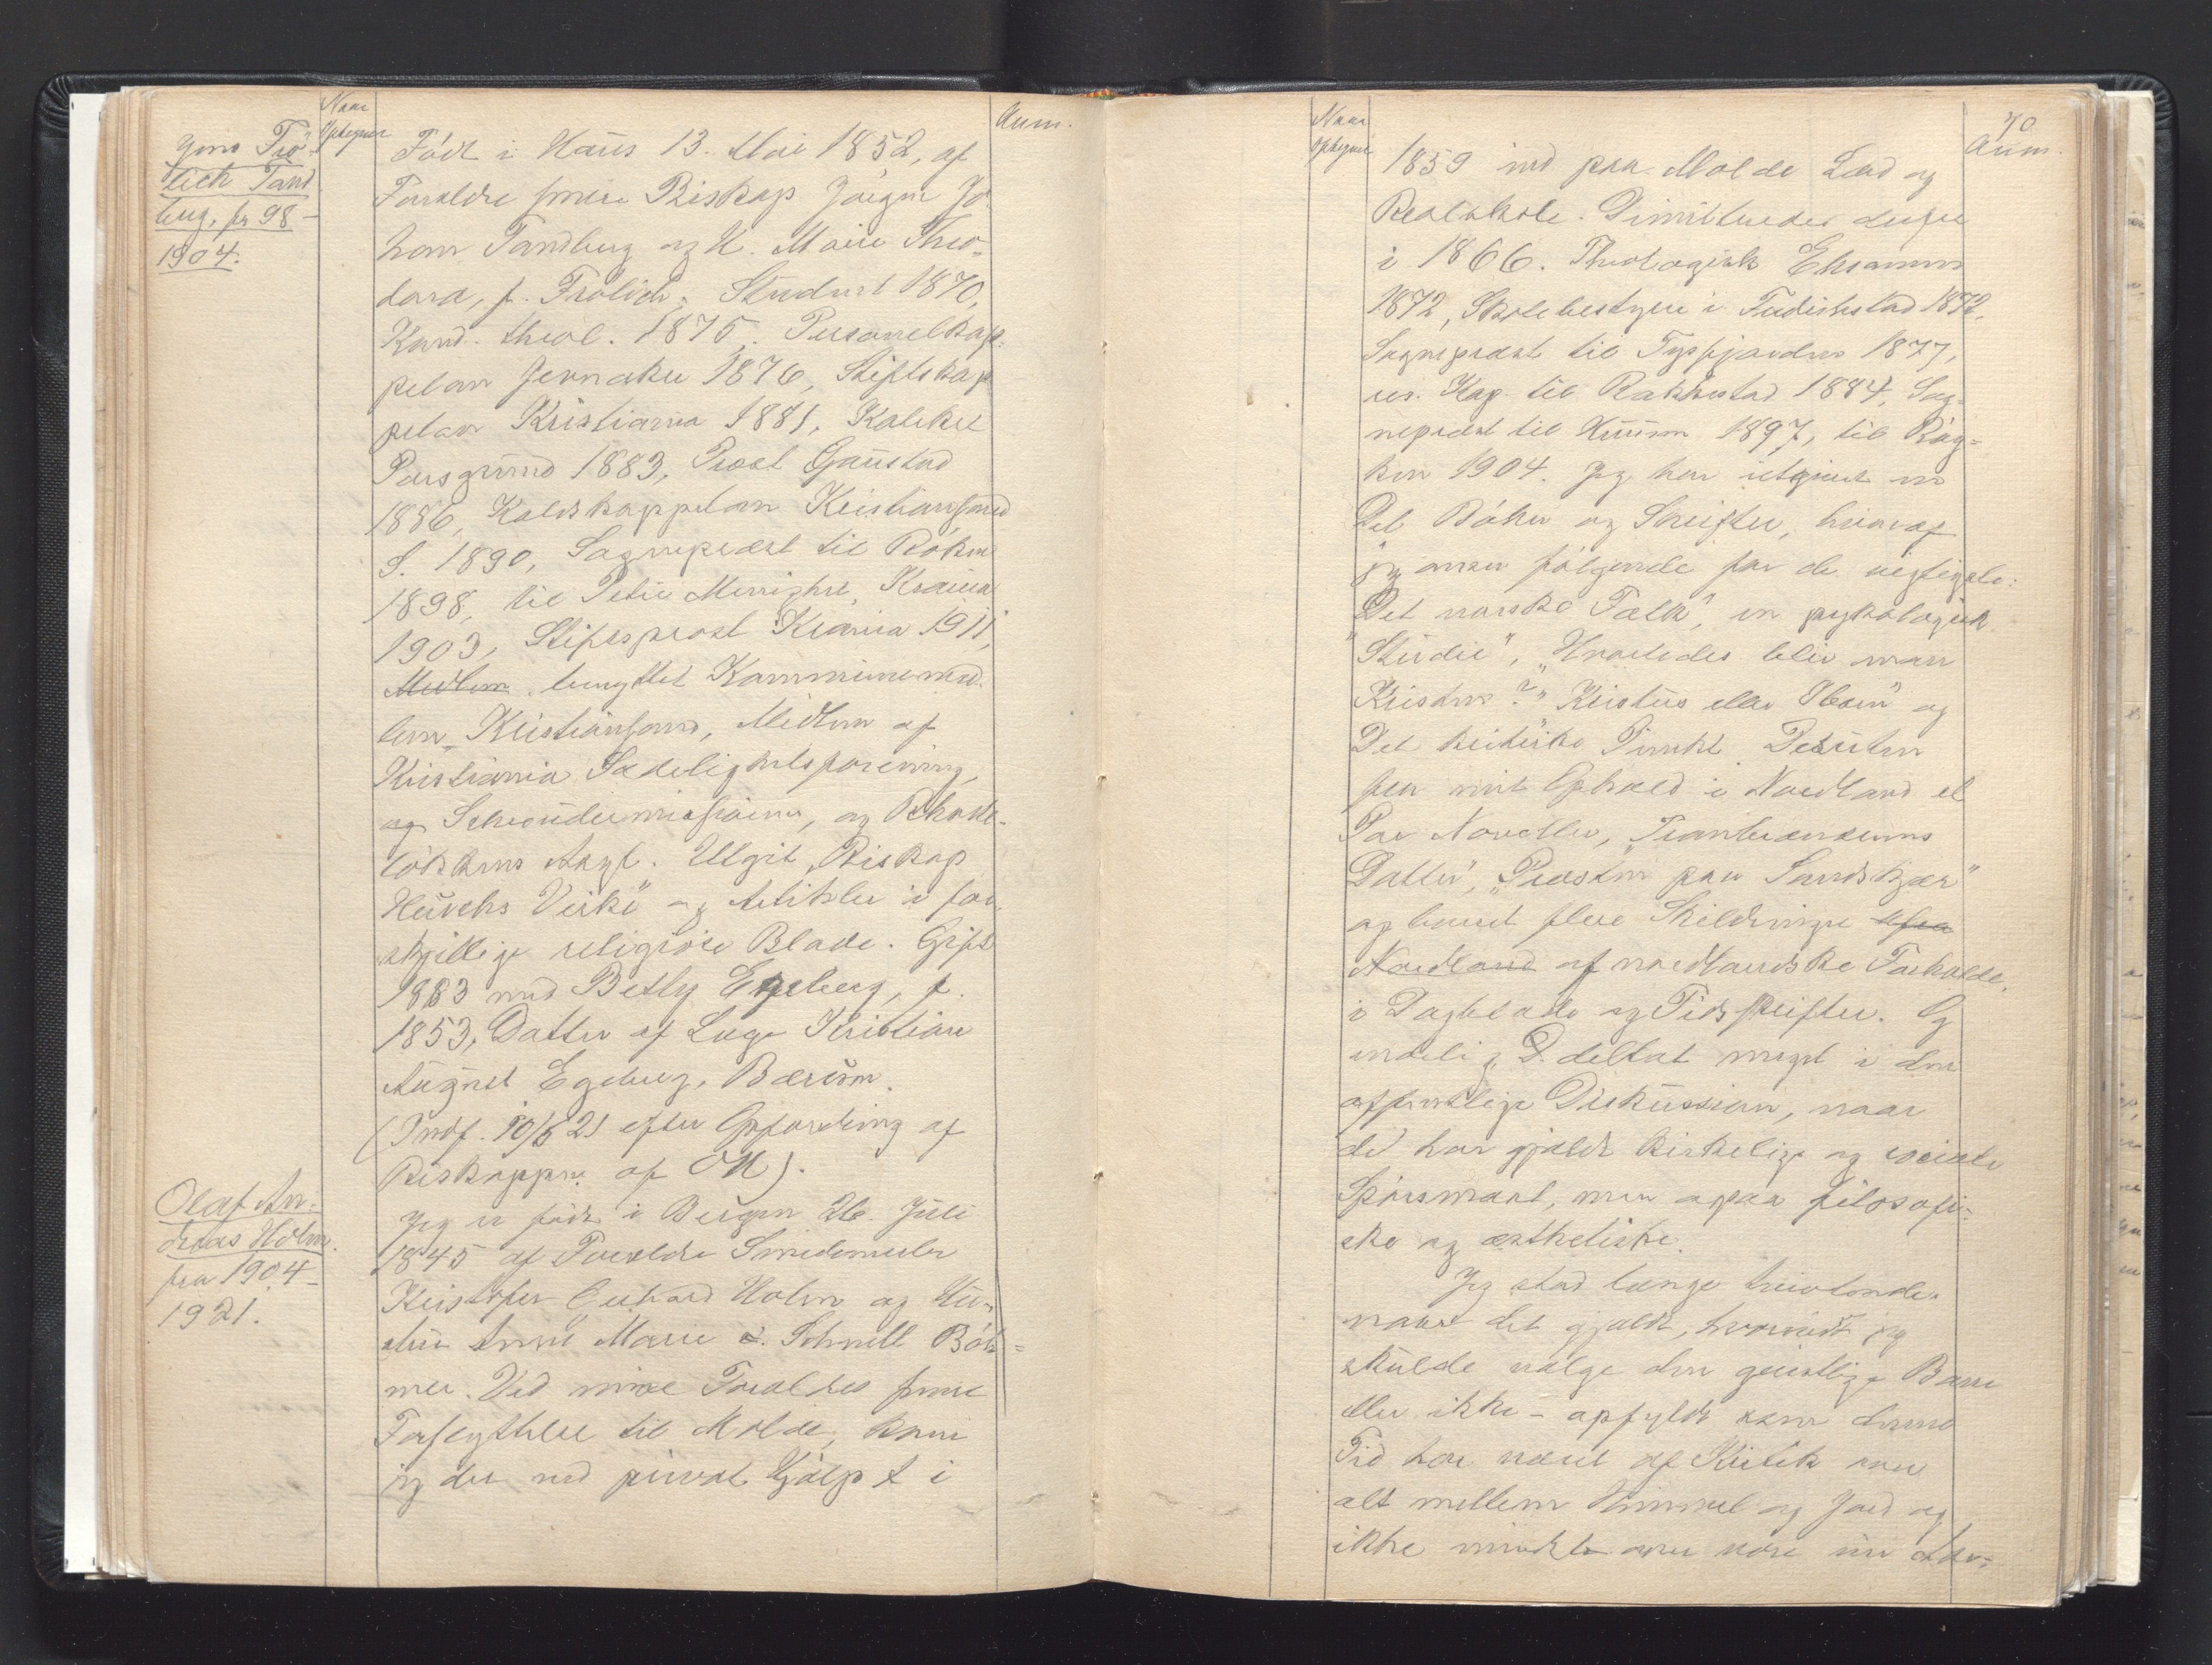 Naar
Optegnet
Anm.
Jens Frö-
lich Tand
berg, fr 98-
1904.
Född i Haus 13. Mai 1852, af
Foraldre senere Biskop Jörgen Jo-
han Tandberg og H. Marie Theo-
dora, f. Frölich. Student 1870,
Kand. theol. 1875. Personelkap-
pelan Jevnaker 1876, Stiftskap
pelan Kristiania 1881, Kateket
Porsgrund 1883, Præst Gaustad
1886, Kaldskappelan Kristiansand
S. 1890, Sogneprest til Röken
1898, til Petri Menighet, Krania
1903, Stiftsprost Krania 1911,
Medlem benyttet Kommunemed-
lem Kristiansand, Medlem af
Kristiania Sædelighetsforening
og Schreudermissionen, og
Utgit „Biskop
Heuchs Virke" og Artikler i for-
skjellige religiöse Blade. Gift
1883 med Betzy Egeberg, f.
1853, Datter af Læge Kristian
August Egeberg, Bærum.
(Indf. 10/5 21 efter Opfordring af
Biskoppen af OH).
Olaf An-
dreas Holm
fra 1904-
1921.
Jeg er född i Bergen 26. Juli
1845 af Foraldre Smedemester
Kristofer Holm og Hu-
stru Anne Marie Schnell Böh-
mer. Ved mine Foraldres senere
Forflyttelse til Molde, kom
jeg der ved privat Hjælp i
Naar
Optegnet
70
Anm.
1859 ind paa Molde Lærd og
Realskole. Dimitteredes derfra
i 1866. Theologisk Eksamen
1872, Skolebestyrer i Fredrikstad 1872,
Sogneprest til Tysfjorden 1877,
res. Kap. til Rakkestad 1884, Sog-
neprest til Hurum 1897, til Röy-
ken 1904. Jeg har utgivet en
Del Böker og Skrifter, hvoraf
jeg anser fölgende for de vigtigste:
„Det norske Folk", en psykologisk
Studie", „Hvorledes blir man
Kristen?" „Kristus eller Ibsen" og
„Det kritiske Punkt". Desuten
fra mit Ophold i Nordland et
Par Noveller, „
Datter", „Præsten paa Sandskjær"
og levert flere Skildringer fra
Nordland af nordlandske Forholde
i Dagblade og Tidsskrifter. Og
endelig D. deltat meget i den
offentlige Diskussion, naar
det har gjældt kirkelige og sociale
Spörsmaal, men ogsaa filosofi-
ske og æsthetiske.
Jeg stod længe tvivlende
naar det gjældt, hvorvidt jeg
skulde vælge den geistlige Bane
eller ikke - opfyldt som denne
Tid har været af Kritik over
alt mellem Himmel og Jord og
ikke mindst over vore